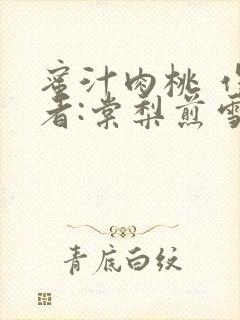 蜜汁肉桃
者:棠梨煎雪
青底白纹